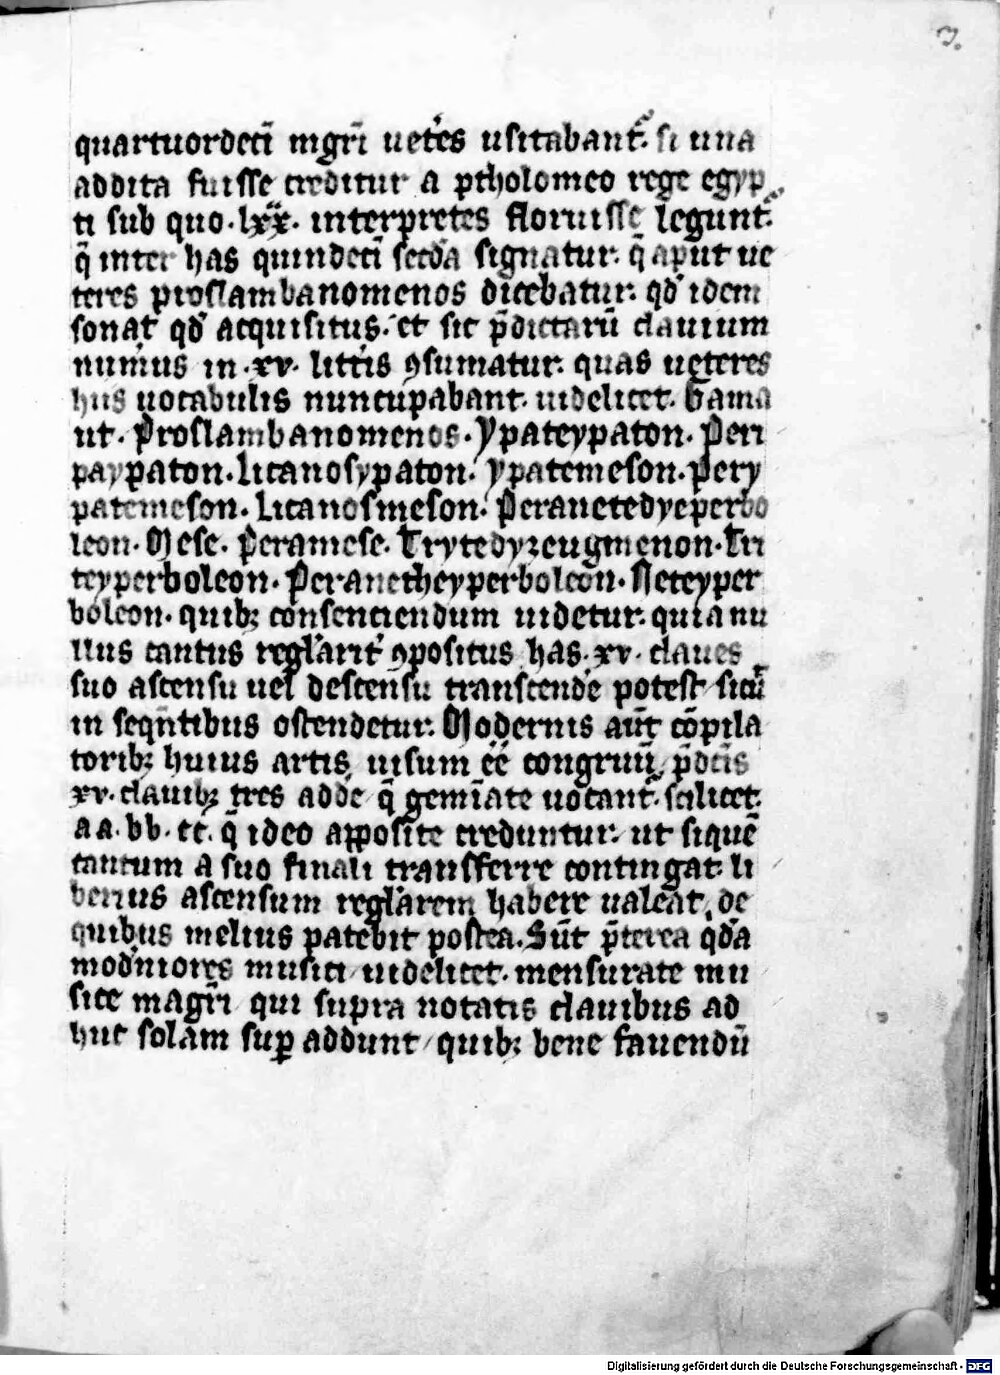 3.
quartuordecī mgr̄i uet̕es usitabant᷑. si una
addita fuisse creditur a ptholomeo rege egyp
ti sub quo. lxx. interpretes floruisse legunt᷑.
q̄ inter has quindecī sc̄da signatur. q̄ aput ue
teres proslambanomenos dicebatur. qd̕ idem
sonat qd̕ acquisitus. et sic p̄dictarū clauium
num̕us in .xv. litt̕is ꝯsumatur. quas ueteres
hiis uocabulis nuncupabant. uidelicet. Gama
ut. Proslambanomenos. Ypateypaton. Peri
paypaton. Licanosypaton. Ypatemeson. Pery
patemeson. Licanosmeson. Peranetedyeperbo
leon. Mese. Peramese. Trytedyzeugmenon. Tri
teyperboleon. Peranetheyperboleon. Neteyper
boleon. quibꝫ consenciendum uidetur. quia nu
llus cantus regl̕arit̕ ꝯpositus has .xv. claues
suo ascensu uel descensu transcende̕ potest sicū
in seqn̄tibus ostendetur. Modernis aūt cōpila
toribꝫ huius artis uisum ēē congruū p̄dc̄is
xv. clauibꝫ tres adde̕ q̄ gemīate uocant᷑. scilicet.
aa. bb. cc. q̄ ideo apposite creduntur. ut siquē
cantum a suo finali transferre contingat. li
berius ascensum regl̕arem habere ualeat, de
quibus melius patebit postea. Sūt p̄terea qd̕a
mod̕niores musici uidelicet. mensurate mu
sice magr̄i qui supra notatis clauibus ad
huc solam suꝑ addunt quibꝫ bene fauendū
Digitalisierung gefördert durch die Deutsche Forschungsgemeinschaft - DFG